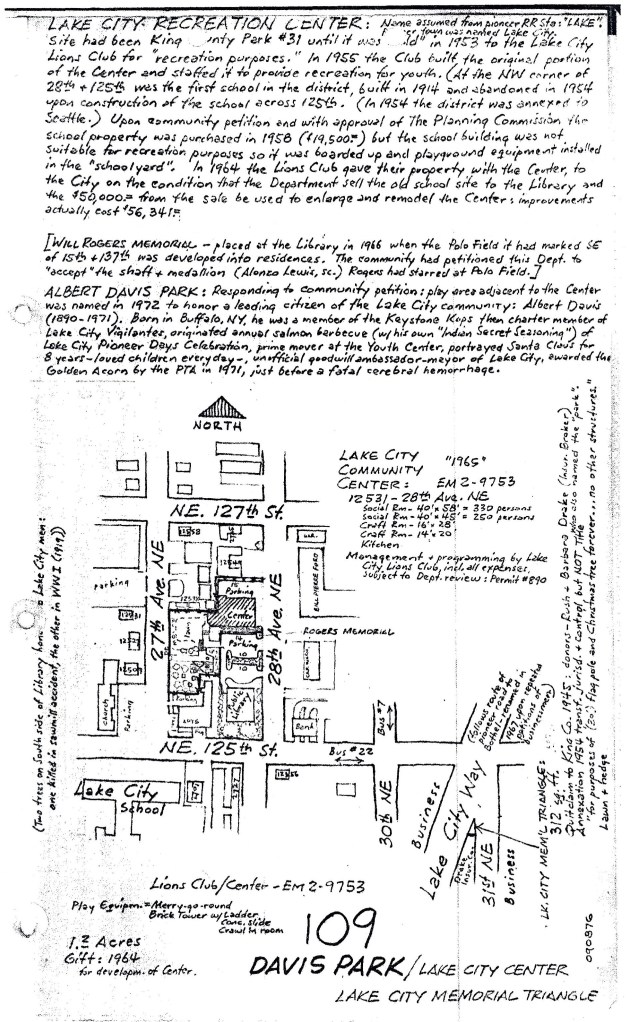 LAKE CITY RECREATION CENTER: Name assumed from pioneer RR Sta: "LAKE".
town was named Lake City.
Site had been King nty Park #31 until it was "sold" in 1953 to the Lake City
Lions Club for "recreation purposes." In 1955 the Club built the original portion
of the Center and staffed it to provide recreation for youth. (At the NW corner of
28th + 125th was the first school in the district, built in 1914 and abandoned in 1954
upon construction of the school across 125th. (In 1954 the district was annexed to
Seattle.) Upon community petition and with approval of The Planning Commission the
school property was purchased in 1958 ($19,500=) but the school building was not
suitable for recreation purposes so it was boarded up and playground equipment installed
in the "schoolyard". In 1964 the Lions Club gave their property with the Center, to
the City on the condition that the Department sell the old school site to the Library and
the $50,000= from the sale be used to enlarge and remodel the Center: improvements
actually cost $56,341=
[WILL ROGERS MEMORIAL - placed at the Library in 1966 when the Polo Field it had marked SE
of 15th + 137th was developed into residences. The community had petitioned this Dept. to
"accept" the shaft + medallion (Alonzo Lewis, sc.) Rogers had starred at Polo Field.]
ALBERT DAVIS PARK: Responding to community petition: play area adjacent to the Center
was named in 1972 to honor a leading citizen of the Lake City community: Albert Davis
(1890-1971). Born in Buffalo, NY, he was a member of the Keystone Kops then charter member of
Lake City Vigilantes, originated annual salmon barbecue (w/his own "Indian Secret Seasoning") of
Lake City Pioneer Days Celebration, prime mover at the Youth Center, portrayed Santa Claus for
8 years-loved children everyday-, unofficial goodwill ambassador-mayor of Lake City, awarded the
Golden Acorn by the PTA in 1971, just before a fatal cerebral hemorrhage.
NORTH
LAKE CITY "1965"
COMMUNITY
CENTER: EM 2-9753
12531-28th Ave. NE
Social Rm - 40'x 58' = 330 persons
Social Rm - 40'x 45' = 250 persons
Craft Rm - 16'x 28'
Craft Rm - 14'x 20'
Kitchen
Management + programming by Lake
City Lions Club, incl. all expenses,
subject to Dept. review: Permit #890
N.E. 127th St.
27th Ave. NE
28th Ave. NE
12558
Parking
Parking
Center
Parking
ROGERS MEMORIAL
Public Library
Church
Parking
Bank
Bus #7
N.E. 125th St.
Bus #22
30th NE
Business
Lake City Way
Drake Insur. Co.
31st NE
Business
(follows route of
pioneer road to
Bothell; renamed in
1967 upon repeated
petitions of
businessmen)
Lake City
School
(Two trees on South side of Library honor Lake City men:
one killed in sawmill accident, the other in WWI (1919))
LK. CITY MEM'L TRIANGLE:
312 sq. ft.
Quitclaim to King Co. 1945: donors - Rush + Barbara Drake (Insur. Broker)
Annexation 1954 transf. jurisd. + control, but NOT Title. Who also named the "park".
"for purposes of (30') flag pole and Christmas tree forever... no other structures."
Lawn + hedge
Lions Club/Center - EM 2-9753
Play Equipm. = Merry-go-round
Brick Tower w/ Ladder
Conc. Slide
Crawl in room
1.3 Acres
Gift: 1964
for developm. of Center.
109
DAVIS PARK/LAKE CITY CENTER
LAKE CITY MEMORIAL TRIANGLE
090876